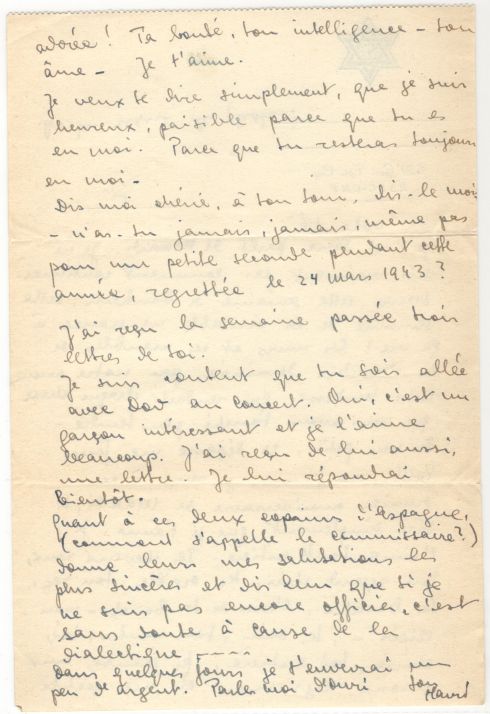 adorée! Ta bonté, ton intelligence – ton
âme – Je t'aime.
Je veux te dire simplement, que je suis
heureux, paisible parce que tu es
en moi. Parce que tu resteras toujours
en moi –
Dis moi chérie, à ton tour, dis-le moi
– n'as-tu jamais, jamais, même pas
pour une petite seconde pendant cette
année, regrettée le 24 mars 1943?
J'ai reçu la semaine passée trois
lettres de toi.
Je suis content que tu sois allée
avec Dov au concert. Oui, c'est un
garçon intéressant et je l'aime
beaucoup. J'ai reçu de lui aussi,
une lettre. Je lui répondrai
bientôt.
Quant à ces deux copains d'Aspagne,
(comment s'appelle le commissaire?)
donne leurs mes salutations les
plus sincères et dis leur que si je
ne suis pas encore officier, c'est
sans doute à cause de la
dialectique -----
Dans quelques jours je t'enverrai un
peu d'argent. Parles moi d'ouri ton